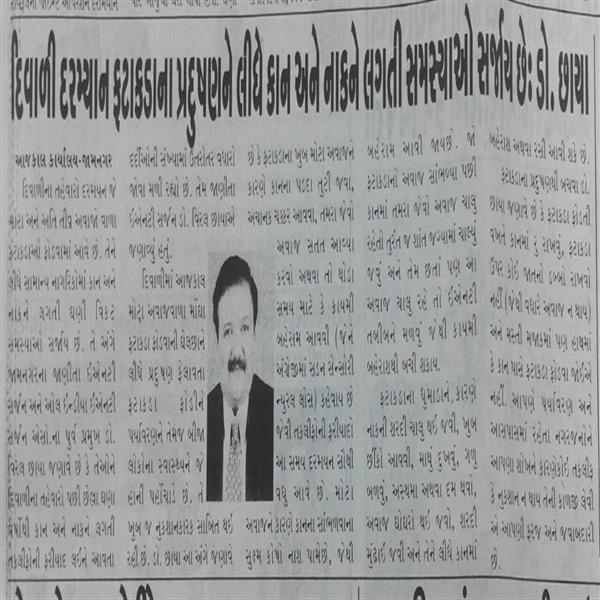 દિવાળી દરમ્યાન ફટાકડાના પ્રદુષણને લીધે કાન અને નાકને લગતી સમસ્યાઓ સર્જાય છેઃ ડો. છાયા
આજકાલ કાર્યાલય-જામનગર
દિવાળીના તહેવારો દરમયાન જે
મોટા અને અતિ તીવ્ર અવાજા વાળા
ફટાકડાઓ ફોડવામાં આવે છે. તેને
લીધે સામાન્ય નાગરિકોમાં કાન અને
નાકને લગતી ઘણી વિકટ
સમસ્યાઓ સર્જાય છે. તે અંગે
જામનગરના જાણીતા ઈએનટી
સર્જન અને ઓલ ઈન્ડીયા ઈએનટી
સર્જન એસો.ના પૂર્વ પ્રમુખ ડો.
વિરલ છાયા જણાવે છે કે તેઓને
દિવાળીના તહેવારો પછી છેલા ઘણા
વર્ષોથી કાન અને નાકને લગતી
તકલીફોની ફરીયાદ લઈને આવતા
દર્દીઓની સંખ્યામાં ઉતરોતર વધારો
જોવા મળી રહ્યો છે. તેમ જાણીતા
ઈએનટી સર્જન ડો. વિરલ છાયાએ
જણાવ્યું હતું.
દિવાળીમાં આજકાલ
મોટા અવાજવાળા મોંઘા
ફટાકડા ફોડવાની ઘેલછાને
લીધે પ્રદુષણ ફેલાવતા
ફટાકડા ફોડીને
પર્યાવરણને તેમજ બીજા
લોકોના સ્વાસ્થ્યને જે
હાની પહોંચાડે છે. તે
ખુબ જ નુકશાનકારક સાબિત થઈ
રહી છે. ડો. છાયા આ અંગે જણાવે
છે કે ફટાકડાના ખુબ મોટા અવાજને
કારણે કાનના પડદા તુટી જવા,
અચાનક ચક્કર આવવા, તમરા જેવો
અવાજ સતત આવ્યા
કરવો અથવા તો થોડા
સમય માટે કે કાયમી
બહેરામ આવવી (જેને
અંગ્રેજીમાં સડન સેન્સોરી
ન્યુરલ લોસ) કહેવાય છે
જેવી તકલીફોની ફરીયાદો
આ સમય દરમયાન સૌથી
વધુ આવે છે. મોટા
અવાજના કારણે કાનના સાંભળવાના
સુક્ષ્મ કોષા નાશ પામેછે, જેથી
બહેરામ આવી જાયછે. જો
ફટાકડાનો અવાજ સાંભળ્યા પછી
કાનમાં તમરા જેવો અવાજ ચાલુ
રહેતો તુરંત જ શાંત જગ્યામાં ચાલ્યુ
જવુ અને તેમ છતાં પણ આ
અવાજ ચાલુ રહે તો ઈએનટી
તબીબને મળવુ જેથી કાયમી
બહેરાશથી બચી શકાય.
ફટાકડાના ધુમાડાને, કારણે
નાકની શરદી ચાલુ થઈ જવી, ખુબ
છીંકો આવવી, માથુ દુખવું, ગળુ
બળવુ, અસ્થમા અથવા દમ થવો,
અવાજ ઘોઘરો થઈ જવો, શરદી
મુઢાઈ જવી અને તેને લીધે કાનમાં
બહેરાશ અથવા રસી આવી શકે છે.
ફટાકડાના પ્રદુષણથી બચવા ડો.
છાયા જણાવે છે કે ફટાકડા ફોડતી
વખતે કાનમાં રૂ રાખવું, ફટાકડા
ઉપર કોઈ જાતનો ડબ્બો રાખવો
નહીં (જેથી વધારે અવાજ ન થાય)
અને મસ્તી મજાકમાં પણ હાથમાં
કે કાન પાસે ફટાકડા ફોડવા જોઈએ
નહીં. આપણે પર્યાવરણ અને
આસપાસમાં રહેતા નગરજનોને
આપણા શોખને કારણેકોઈ તકલીફ
કે નુકશાન ન થાય તેની કાળજી લેવી
એ આપણી ફરજ અને જવાબદારી
છે.